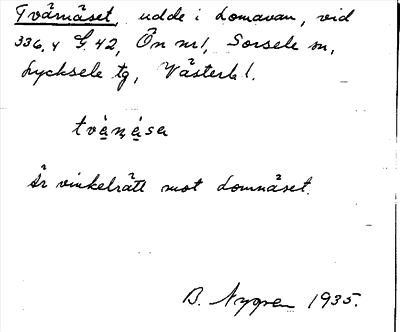 Tvärnäset, udde i Lomavan, vid
336,4 G.42, Ön nr 1, Sorsele sn,
Lycksele tg, Västerb. l.
Är vinkelrätt mot Lomnäset.
B. Nygren 1935.